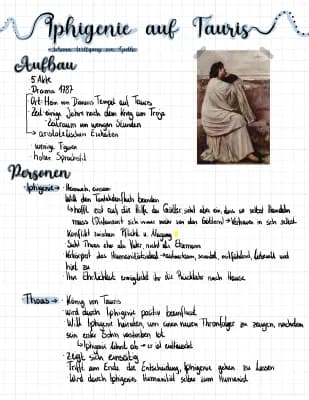 Iphigenie auf Tauris
Johann Wolfgang von Goethe
Aufbau
5 Akte
Drama 1787
Ort: Hain von Dianas Tempel auf Tauris
Zeit: einige Jahre nach dem Krieg von Troja
Zeitraum von wenigen Stunden
→ aristotelischen Einheiten
wenige Figuren
hoher Sprachstil
Personen
Iphigenie → Heimweh, einsam
Will den Tantalidenfluch beenden
hofft erst auf die Hilfe der Götter, sieht aber ein, dass sie selbst Handeln
muss (Distanziert sich immer mehr von den Göttern) → Vertrauen in sich selbst
Konflikt zwischen Pflicht u. Neigung
Sieht Thoas eher als Vater, nicht als Ehemann
Verkörpert das Humanitätsideal → selbstlos, mitfühlend,
Ihre Ehrlichkeit ermöglicht ihr die Rückkehr nach Hause
Thoas → König von Tauris
wird durch Iphigenie positiv beeinflusst
Will Iphigenie heiraten, um einen neuen Thronfolger zu zeugen, nachdem
sein erster Sohn verstorben ist
Iphigenie lehnt ab → er ist enttäuscht
Zeigt sich einsichtig
Trifft am Ende die Entscheidung, Iphigenie gehen zu lassen
Wird durch Iphigenies Humanität selbst zum Humanist